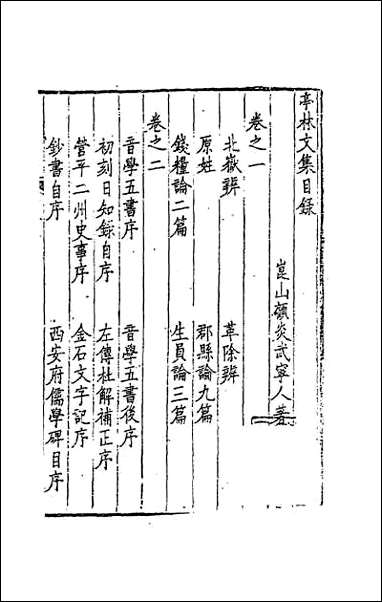 亭林文集目錄
崑山顧炎武寧人著
卷之一
北嶽辨 革除辨
原姓 郡縣論九篇
錢糧論二篇 生員論三篇
卷之二
音學五書序 音學五書後序
初刻日知錄自序 左傳杜解補正序
營平二州史事序 金石文字記序
鈔書自序 西安府儒學碑目序